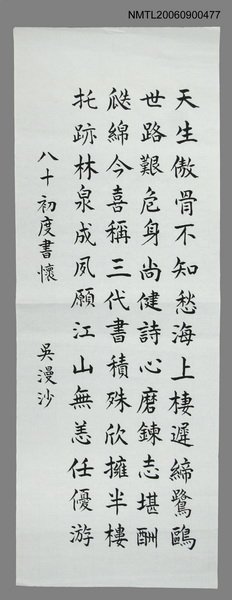 NMTL20060900477
天生傲骨不知愁海上棲遲締鷺鷗
世路艱危身尚健詩心磨鍊志堪酬
瓞綿今喜稱三代書積殊欣擁半樓
托跡林泉成夙願江山無恙任優游
八十初度書懷 吳漫沙